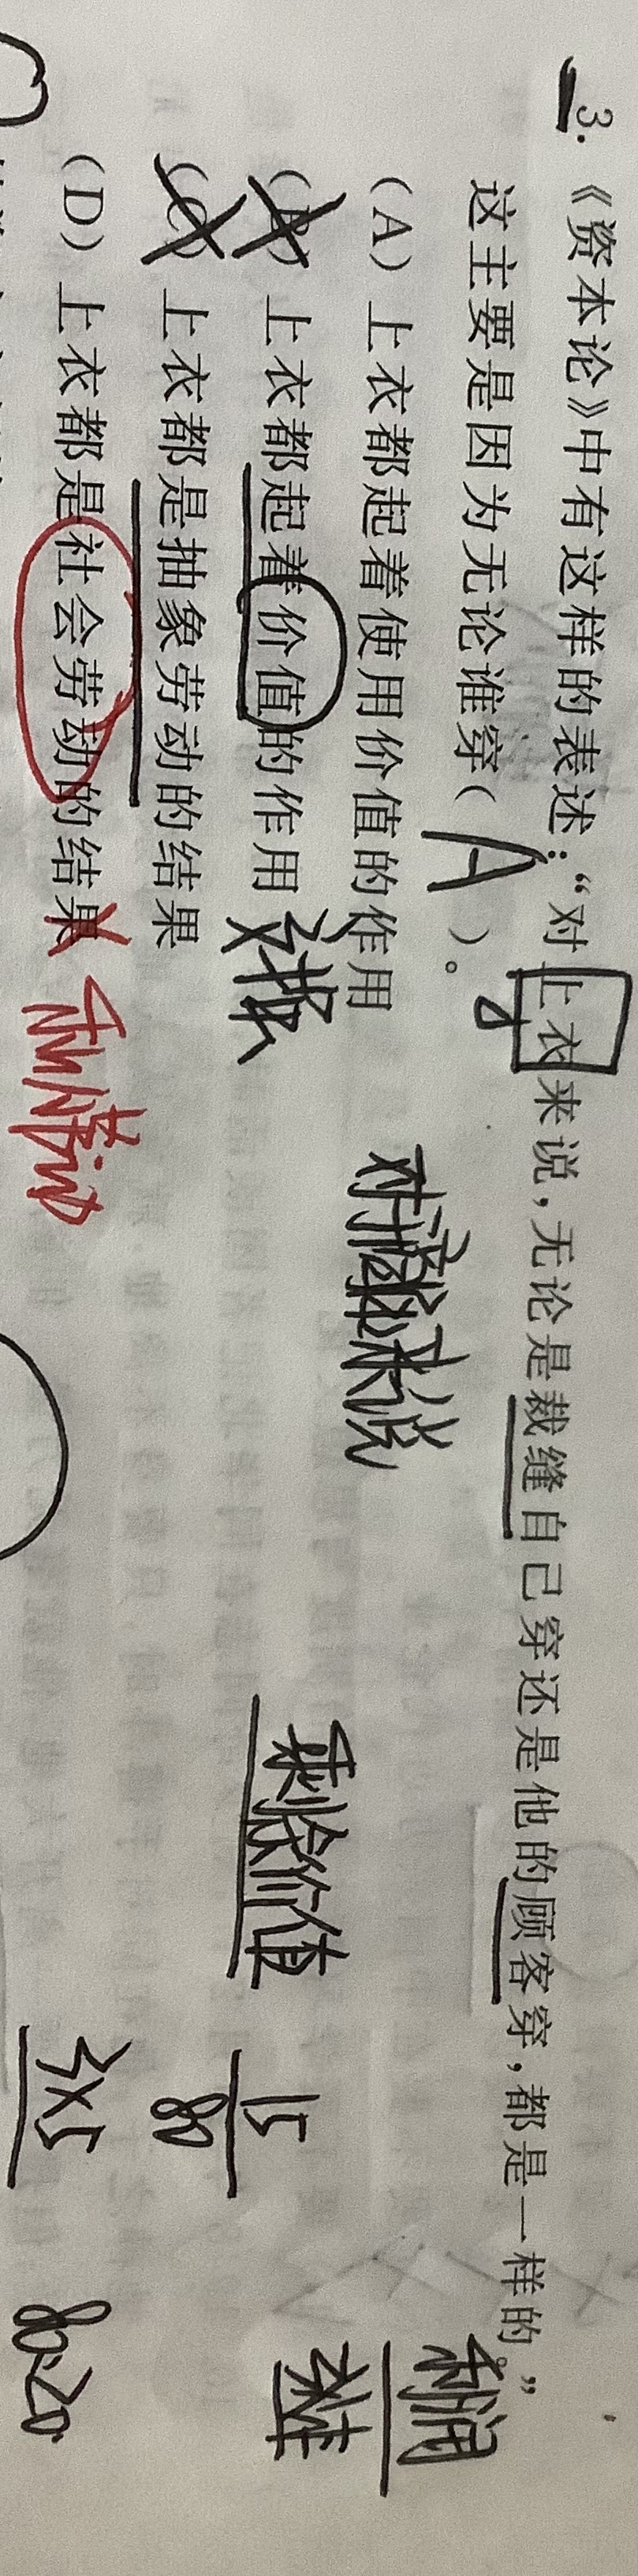 3.《资本论》中有这样的表述：“对上衣来说，无论是裁缝自己穿还是他的顾客穿，都是一样的。”
这主要是因为无论谁穿( A )。
(A) 上衣都起着使用价值的作用
对 来说
利润
(B) 上衣都起着价值的作用
交换
剩余价值
15
80
(C) 上衣都是抽象劳动的结果
(D) 上衣都是社会劳动的结果
私人劳动
3×5
80-20